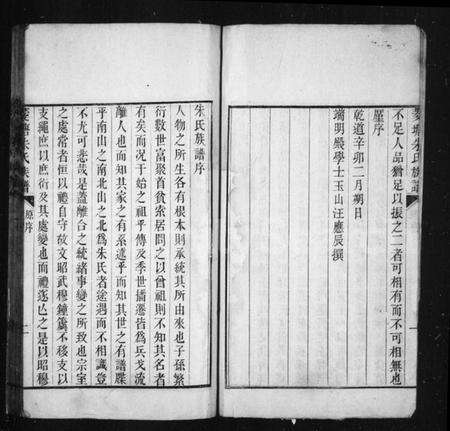 不足人品猶足以振之二者可相有而不可相無也
謹序
乾道辛卯二月朔日
端明殿學士玉山汪應辰撰
朱氏族譜序
人物之所生各有根本則承統其所由來也子孫繁
衍數世富聚首貧索居問之以曾祖則不知其名者
有矣而况于始之祖乎傳及季世播遷皆為兵戈流
離人也而知其家之有系逑乎而知其世之有譜牒
乎南山之南北山之北為朱氏者途遇而不相識豈
不尤可悲哉是蓋離合之統緒事變之所致也宗室
之處常者恒以禮自守故文昭武穆鐘簴不移支以
支繩庶以庶衍及其處變也而禮遂亾之是以昭穆
朱氏族譜
原序